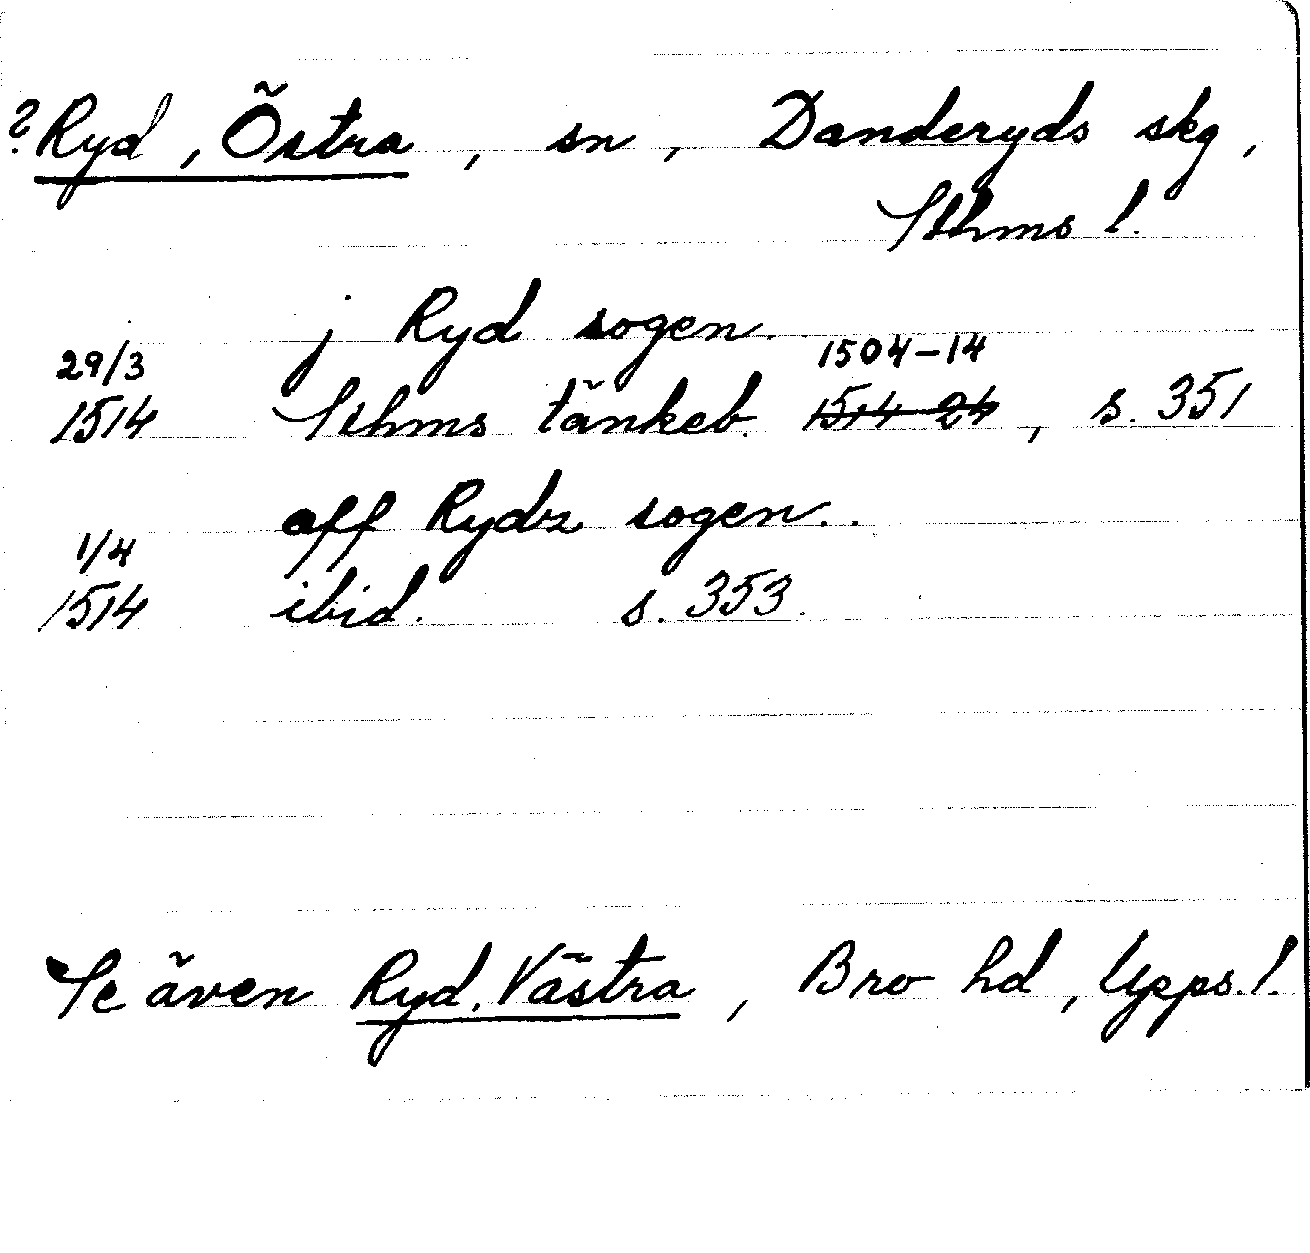 ? Ryd, Östra, sn, Danderyds skg,
Sthms l.
j Ryd sogen.
29/3 1504-14
1514 Sthms tänkeb. 1514-24, s. 351
aff Rydz sogen..
1/4
1514 ibid. s. 353.
Se även Ryd, Västra, Bro hd, Upps. l.